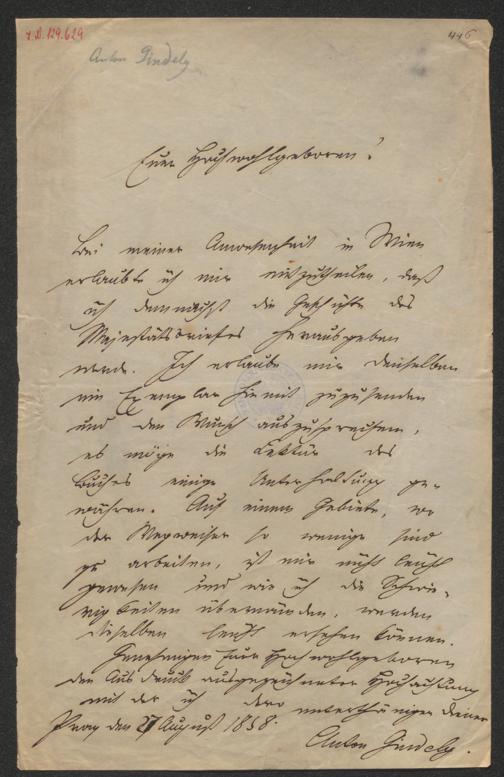 I.N. 129.629
446
Anton Gindely
Euer Hochwohlgeboren!
Bei meiner Anwesenheit in Wien
erlaubte ich mir mitzutheilen, daß
ich demnächst die Geschichte des
Majestätsbriefes herausgeben
werde. Ich erlaube mir denselben
ein Exemplar hiemit zuzusenden
und den Wunsch auszusprechen,
es möge die Lektür des
Buches einige Unterhaltung ge-
währen. Auf einem Gebiete, wo
der Wegweiser so wenige sind
zu arbeiten, ist mir nicht leicht
gewesen und wie ich die Schwie-
rigkeiten überwunden, werden
dieselben leicht ersehen können.
Genehmigen Euer Hochwohlgeboren
den Ausdruck ausgezeichneter Hochachtung
mit der ich dero unterthäniger Diener
Prag den 27 August 1858.
Anton Gindely.